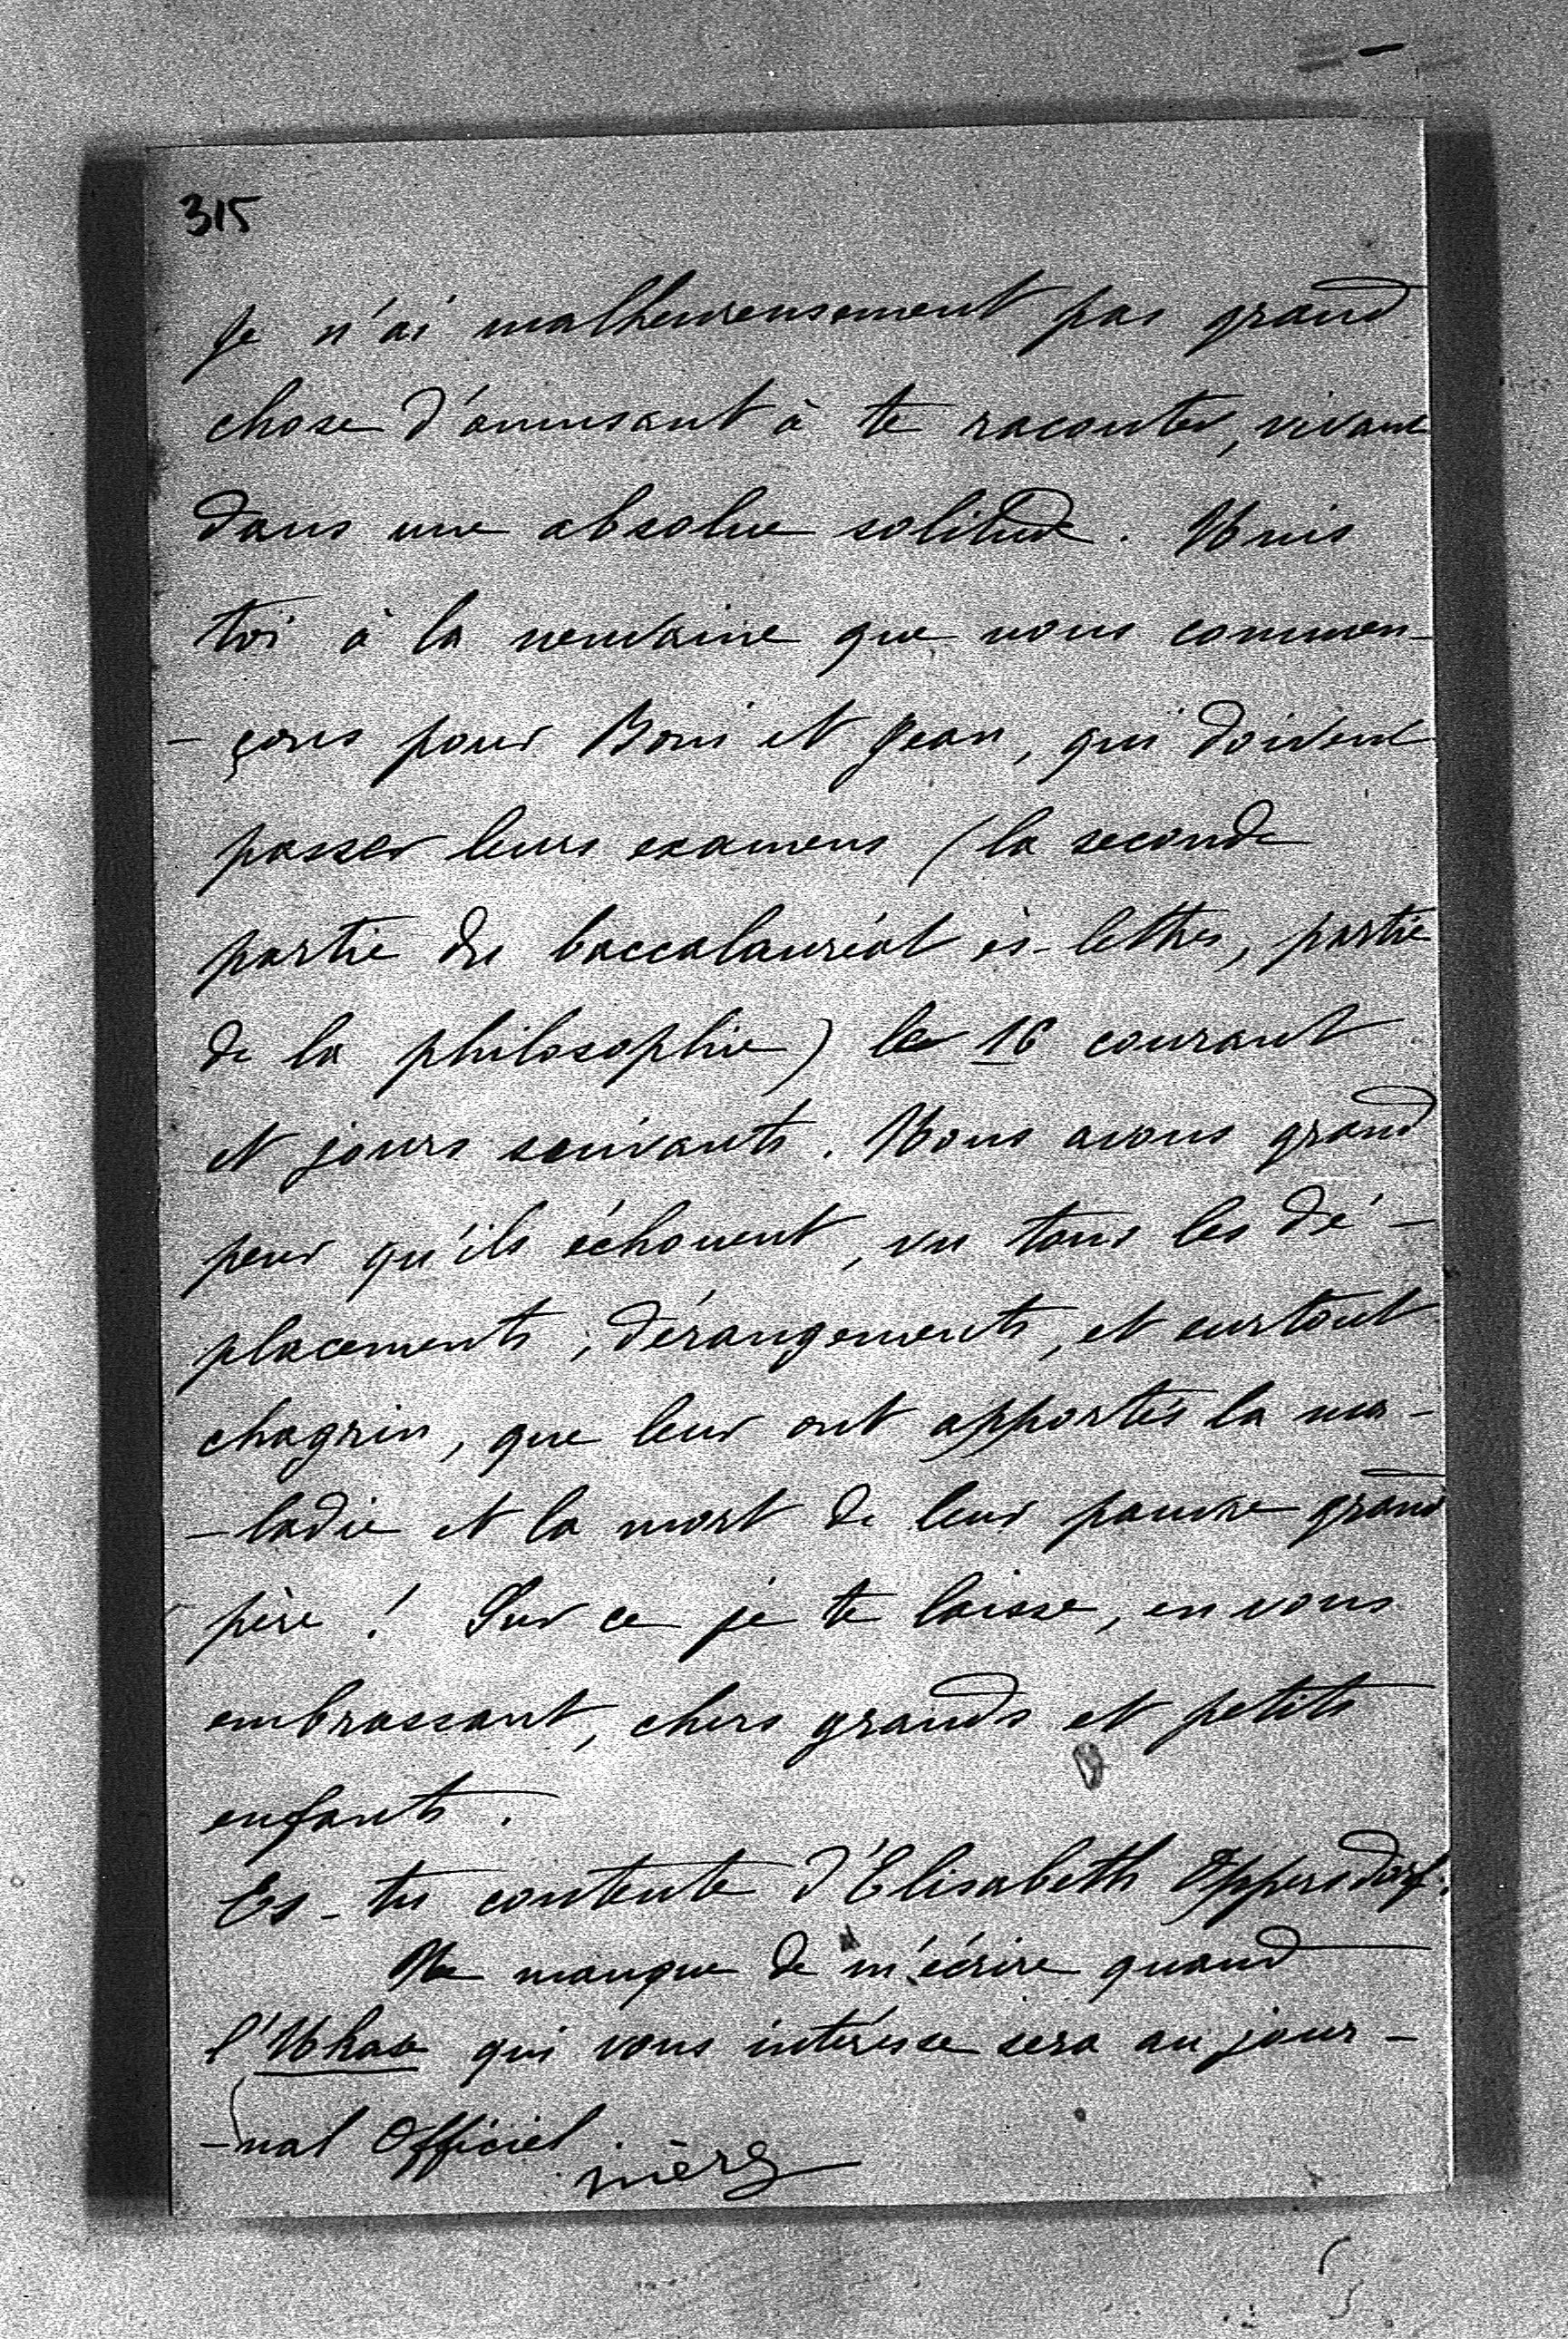 315
Je n'ai malheureusement pas grand
chose d'amusant à te raconter, vivant
dans une absolue solitude. Unis
toi à la neuvaine que nous commen-
- çons pour Boni et Jean, qui doivent
passer leurs examens (la seconde
partie du baccalauréat ès-lettres, partie
de la philosophie) le 16 courant
et jours suivants. Nous avons grand
peur qu'ils échouent, vu tous les dé-
placements, dérangements, et surtout
chagrin, que leur ont apportés la ma-
- ladie et la mort de leur pauvre grand
père ! Sur ce je te laisse, en vous
embrassant, chers grands et petits
enfants.
Es-tu contente d'Elisabeth Oppersdorf.
Ne manque de m'écrire quand
l'Ukase qui vous intéresse sera au jour-
- nal Officiel.
mère